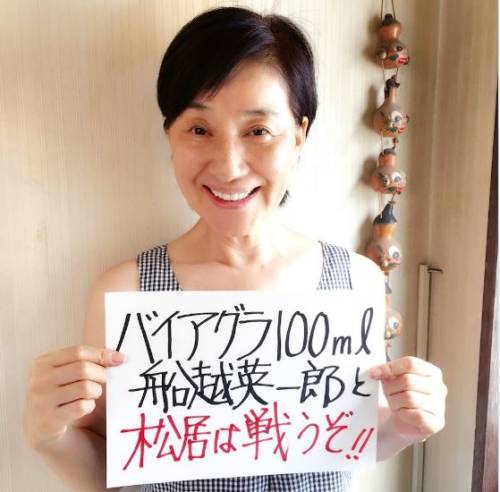 バイアグラ100ml
船越英一郎と
松居は戦うぞ!!